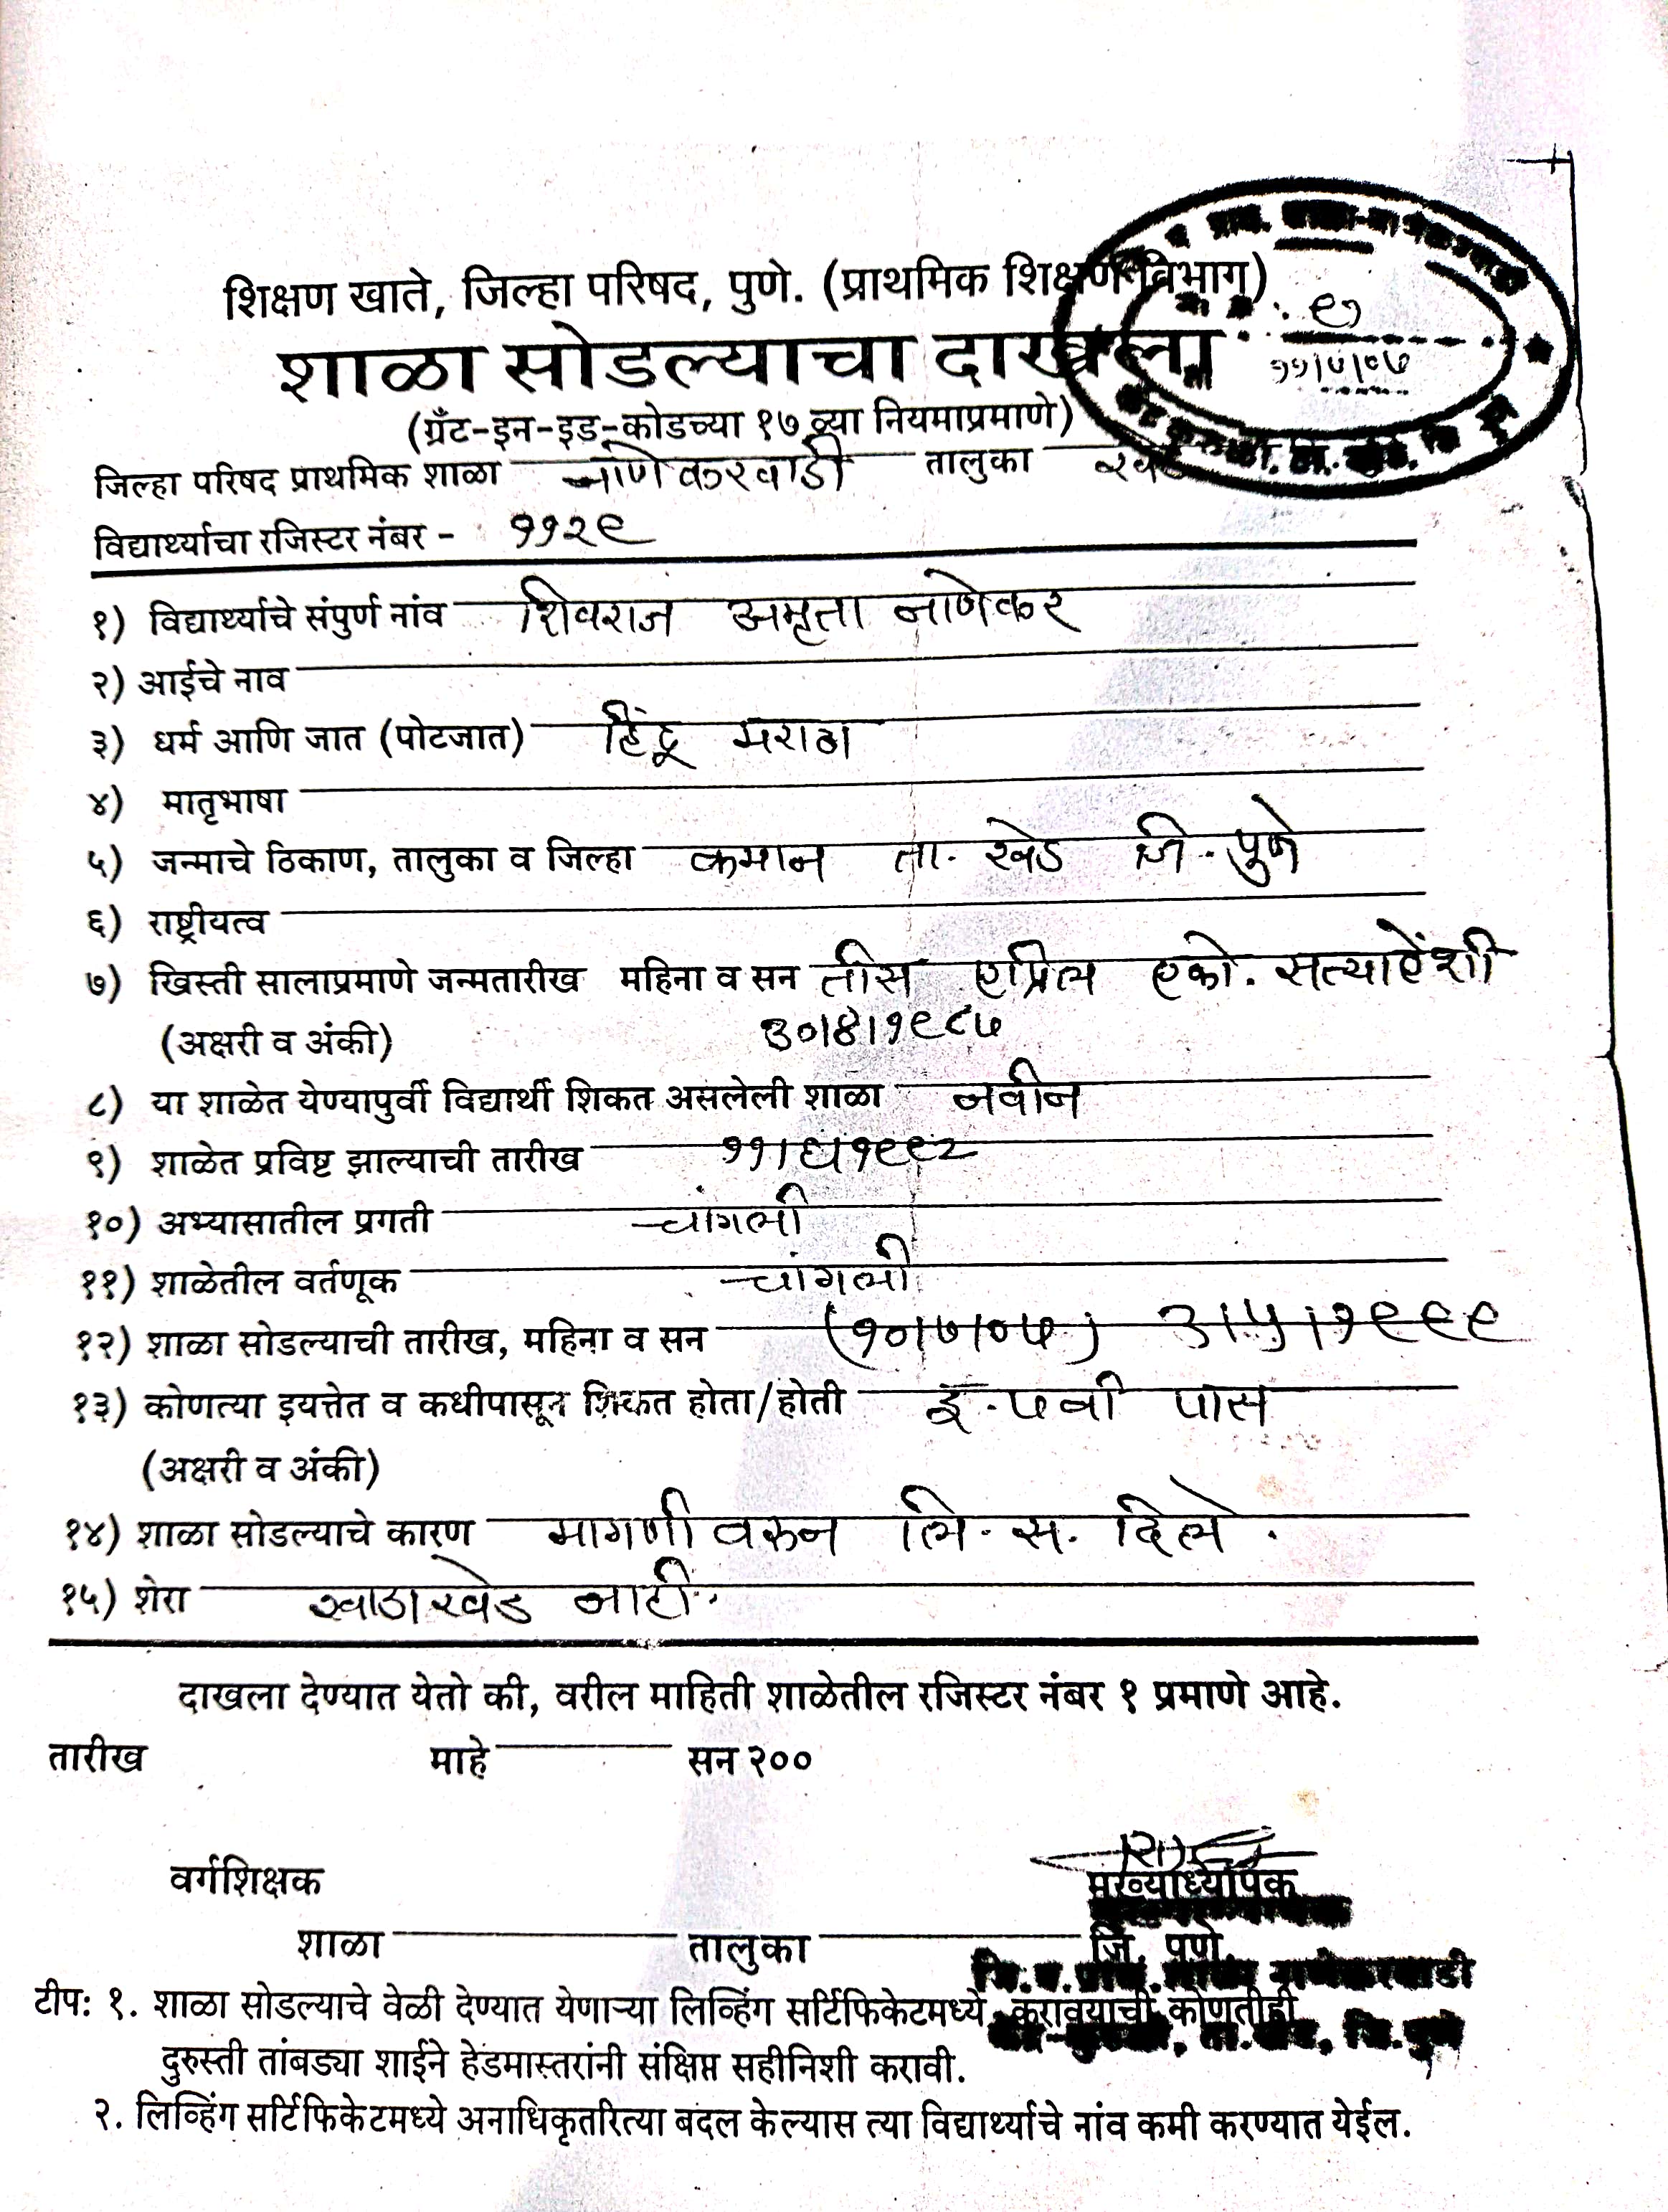 शिक्षण खाते, जिल्हा परिषद, पुणे. (प्राथमिक शिक्षण विभाग)
शाळा सोडल्याचा दाखला
(ग्रँट-इन-इड-कोडच्या १७ व्या नियमाप्रमाणे)
९१
११/७/०७
जिल्हा परिषद प्राथमिक शाळा नाणेकरवाडी तालुका खेड
विद्यार्थ्याचा रजिस्टर नंबर - ११२९
१) विद्यार्थ्याचे संपुर्ण नांव शिवराज अमृता नाणेकर
२) आईचे नाव
३) धर्म आणि जात (पोटजात) हिंदू मराठा
४) मातृभाषा
५) जन्माचे ठिकाण, तालुका व जिल्हा कमान ता. खेड जि. पुणे
६) राष्ट्रीयत्व
७) खिस्ती सालाप्रमाणे जन्मतारीख महिना व सन तीस एप्रिल एको. सत्याऐंशी
(अक्षरी व अंकी) ३०/४/१९८७
८) या शाळेत येण्यापुर्वी विद्यार्थी शिकत असलेली शाळा नवीन
९) शाळेत प्रविष्ट झाल्याची तारीख ११/६/१९९२
१०) अभ्यासातील प्रगती चांगली
११) शाळेतील वर्तणूक चांगली
१२) शाळा सोडल्याची तारीख, महिना व सन (१०/७/०७) ३/५/१९९९
१३) कोणत्या इयत्तेत व कधीपासून शिकत होता/होती इ. ७वी पास
(अक्षरी व अंकी)
१४) शाळा सोडल्याचे कारण मागणी वरुन लि. स. दिले.
१५) शेरा खाडाखोड नाही..
दाखला देण्यात येतो की, वरील माहिती शाळेतील रजिस्टर नंबर १ प्रमाणे आहे.
तारीख माहे सन २००
वर्गशिक्षक मुख्याध्यापक
शाळा तालुका जि. पुणे.
टीप: १. शाळा सोडल्याचे वेळी देण्यात येणाऱ्या लिव्हिंग सर्टिफिकेटमध्ये करावयाची कोणतीही
दुरुस्ती तांबड्या शाईने हेडमास्तरांनी संक्षिप्त सहीनिशी करावी.
२. लिव्हिंग सर्टिफिकेटमध्ये अनाधिकृतरित्या बदल केल्यास त्या विद्यार्थ्याचे नांव कमी करण्यात येईल.